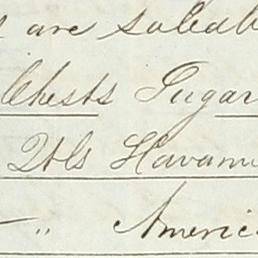 are saleab
Chests Sugar
Qtls Havann
" Americ